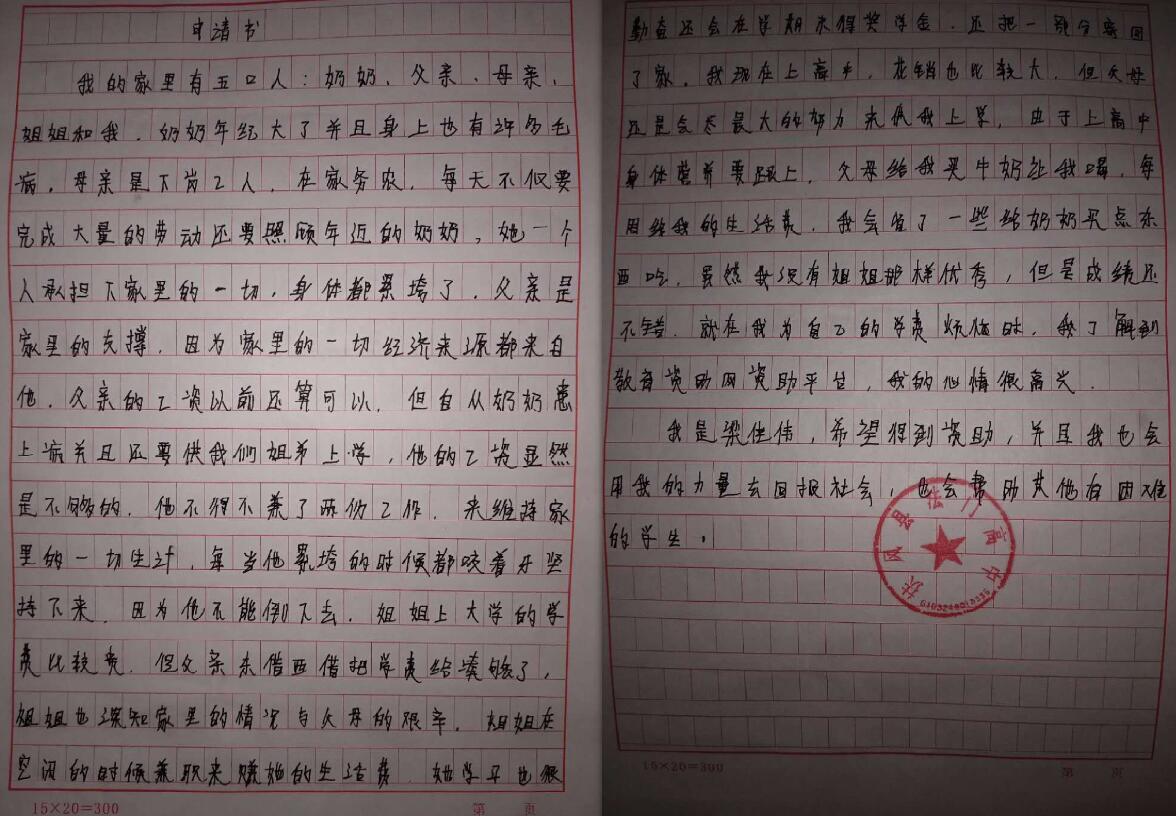 申请书
我的家里有五口人：奶奶、父亲、母亲、
姐姐和我．奶奶年纪大了并且身上也有许多毛
病．母亲是下岗工人．在家务农．每天不仅要
完成大量的劳动还要照顾年迈的奶奶，她一个
人承担下家里的一切，身体都累垮了．父亲是
家里的支撑．因为家里的一切经济来源都来自
他．父亲的工资以前还算可以．但自从奶奶患
上病并且还要供我们姐弟上学，他的工资显然
是不够的．他不得不兼了两份工作．来维持家
里的一切生计，每当他累垮的时候都咬着牙坚
持下来．因为他不能倒下去．姐姐上大学的学
费比较贵．但父亲东借西借把学费给凑够了，
姐姐也深知家里的情况与父母的艰辛．姐姐在
空闲的时候兼职来赚她的生活费．她学习也很
15×20=300
第 页
勤奋还会在学期末得奖学金．还把一部分寄回
了家．我现在上高中．花销也比较大．但父母
还是会尽最大的努力来供我上学．由于上高中
身体营养要跟上．父母给我买牛奶让我喝．每
周给我的生活费．我会省了一些给奶奶买点东
西吃．虽然我没有姐姐那样优秀，但是成绩还
不错．就在我为自己的学费烦恼时．我了解到
教育资助网资助平台，我的心情很高兴．
我是梁佳伟，希望得到资助，并且我也会
用我的力量去回报社会，也会帮助其他有困难
的学生．
扶风县法门高中
15×20=300
第 页